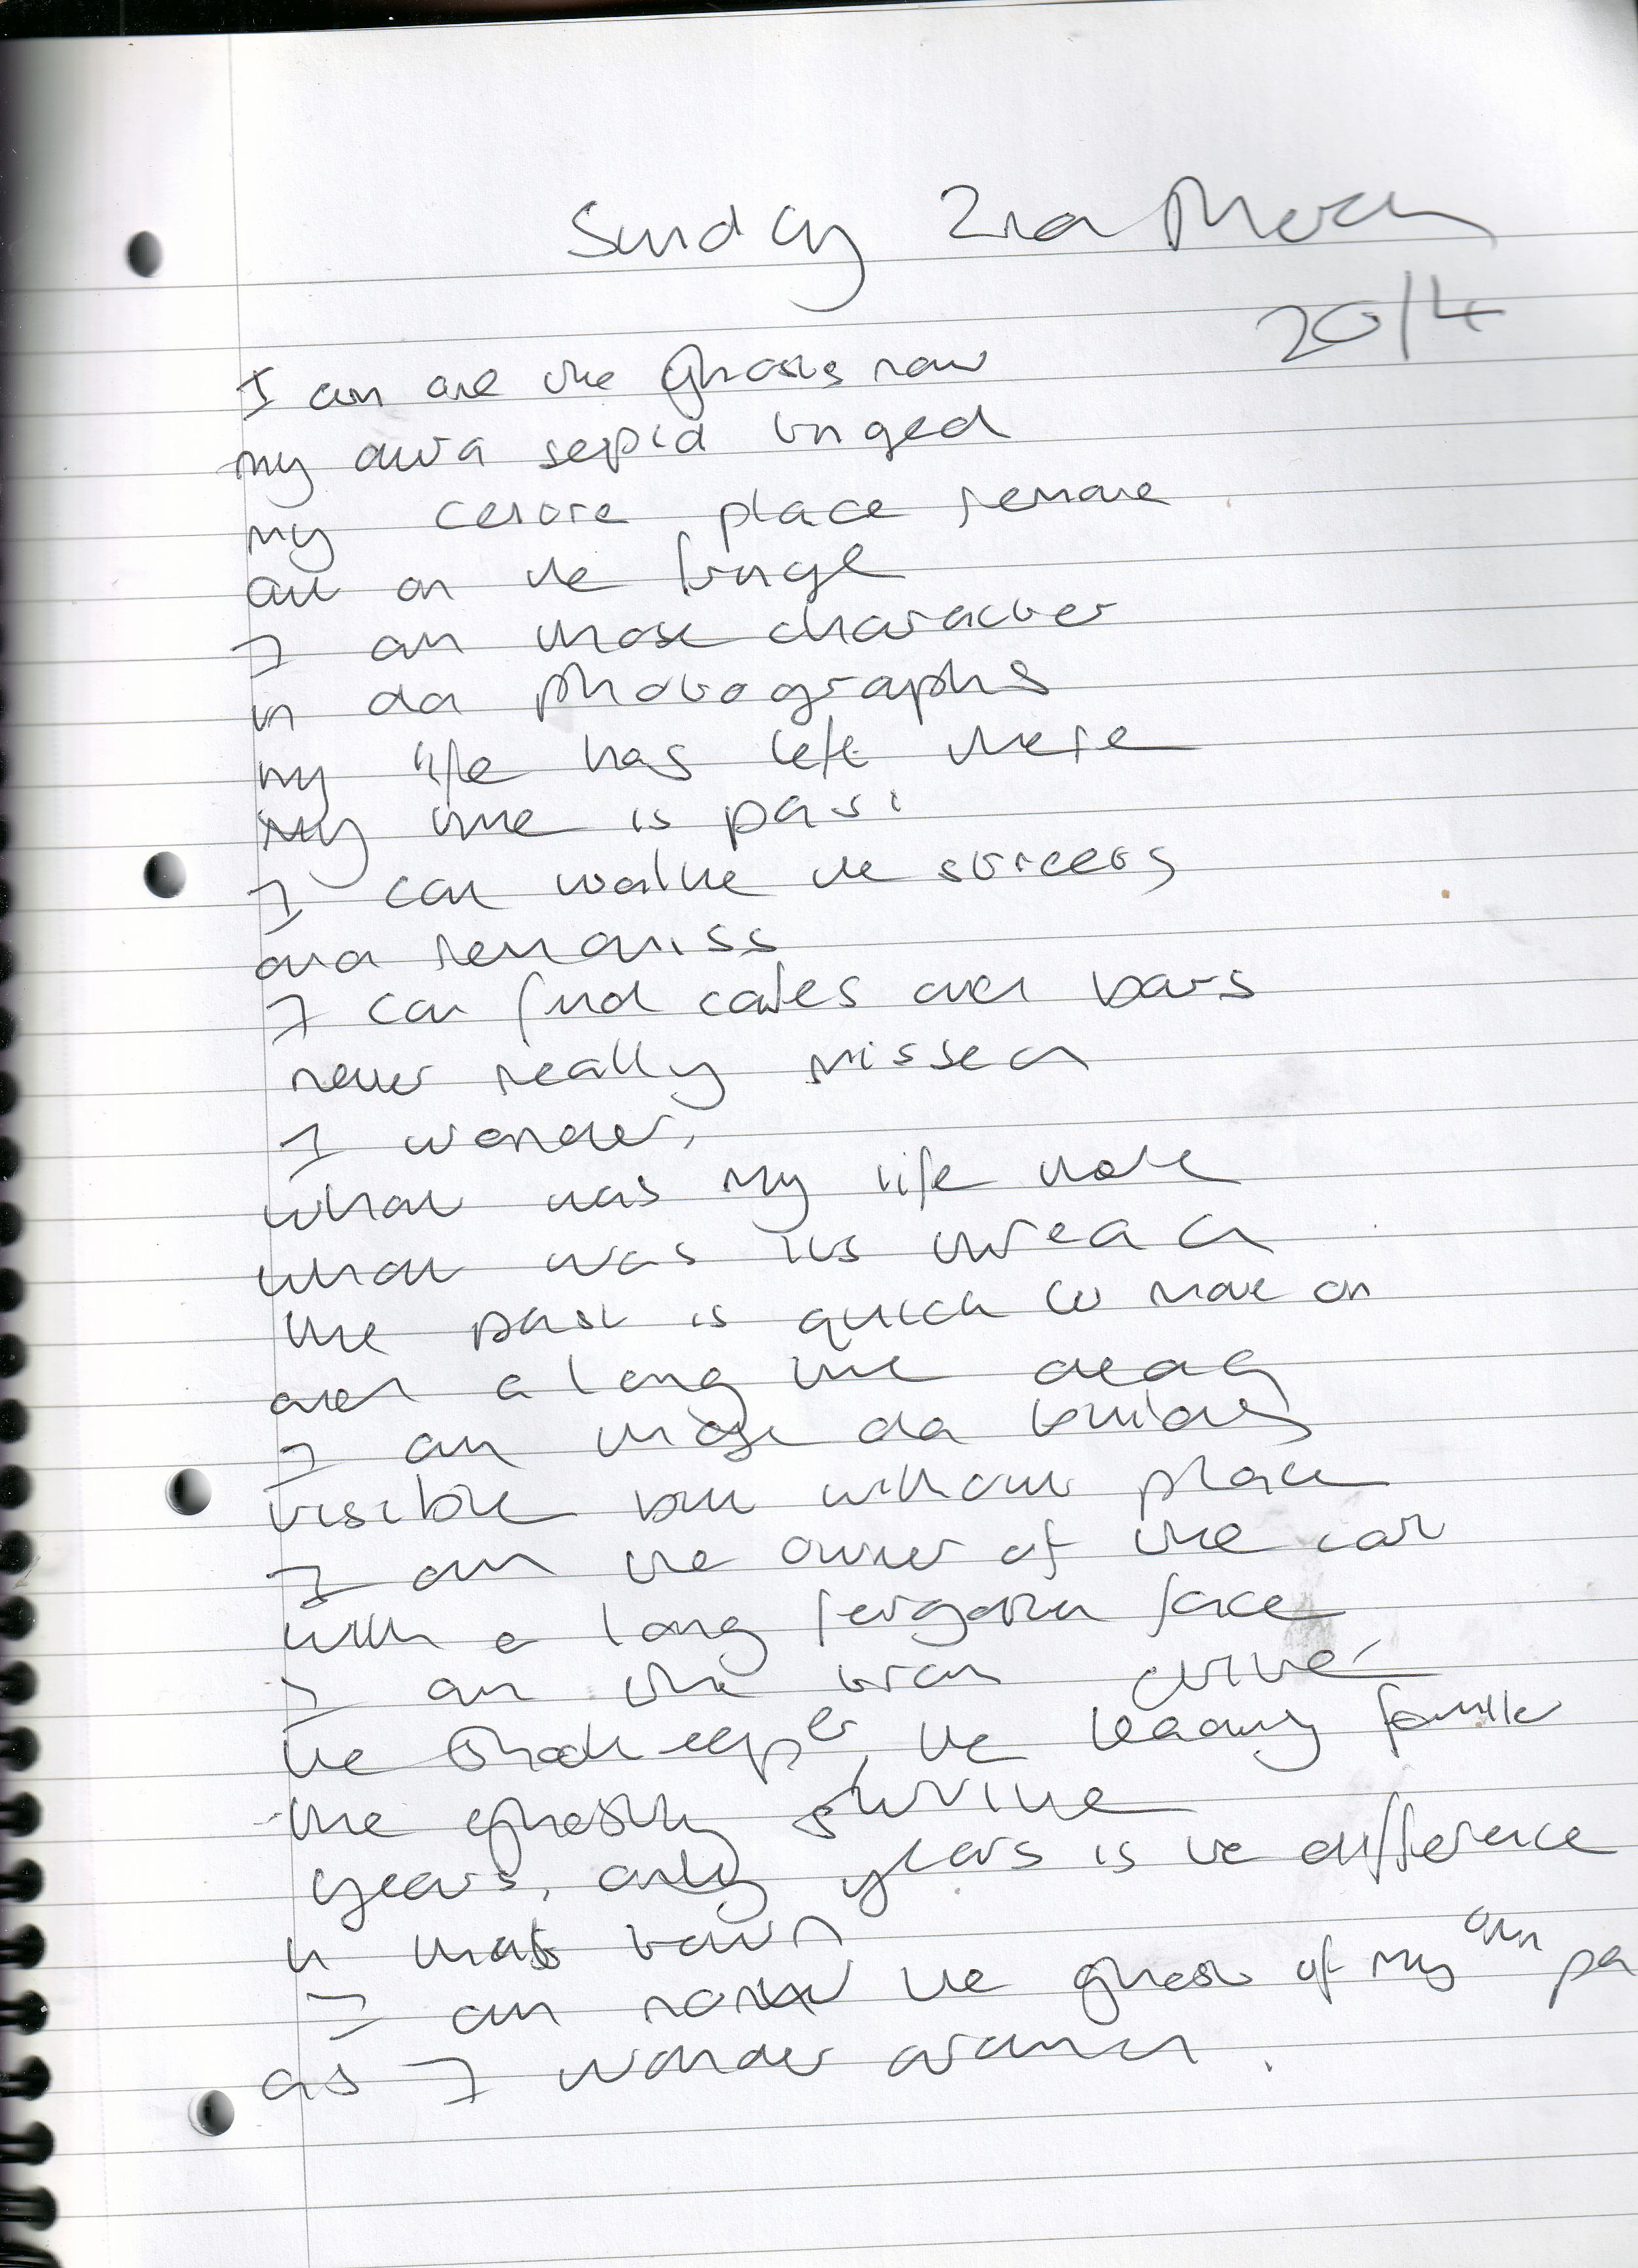 Sunday 2nd March
2014
I am one the ghosts now
my aura sepia tinged
my centre place remove
out on the fringe
I am those character
in old photographs
my life has left there
My time is past
I can walk the streets
and reminiss
I can find cafes and bars
never really missed
I wonder,
what was my life note
what was its thread
the past is quick to move on
over a long time dead
I am those old buildings
visible but without place
I am the owner of the car
with a long forgotten face
I am the tram driver
the Shopkeeper, the leading familie
the ghostly shrine
years, only years is the difference
in that town
I am now the ghost of my own pa
as I wander around.